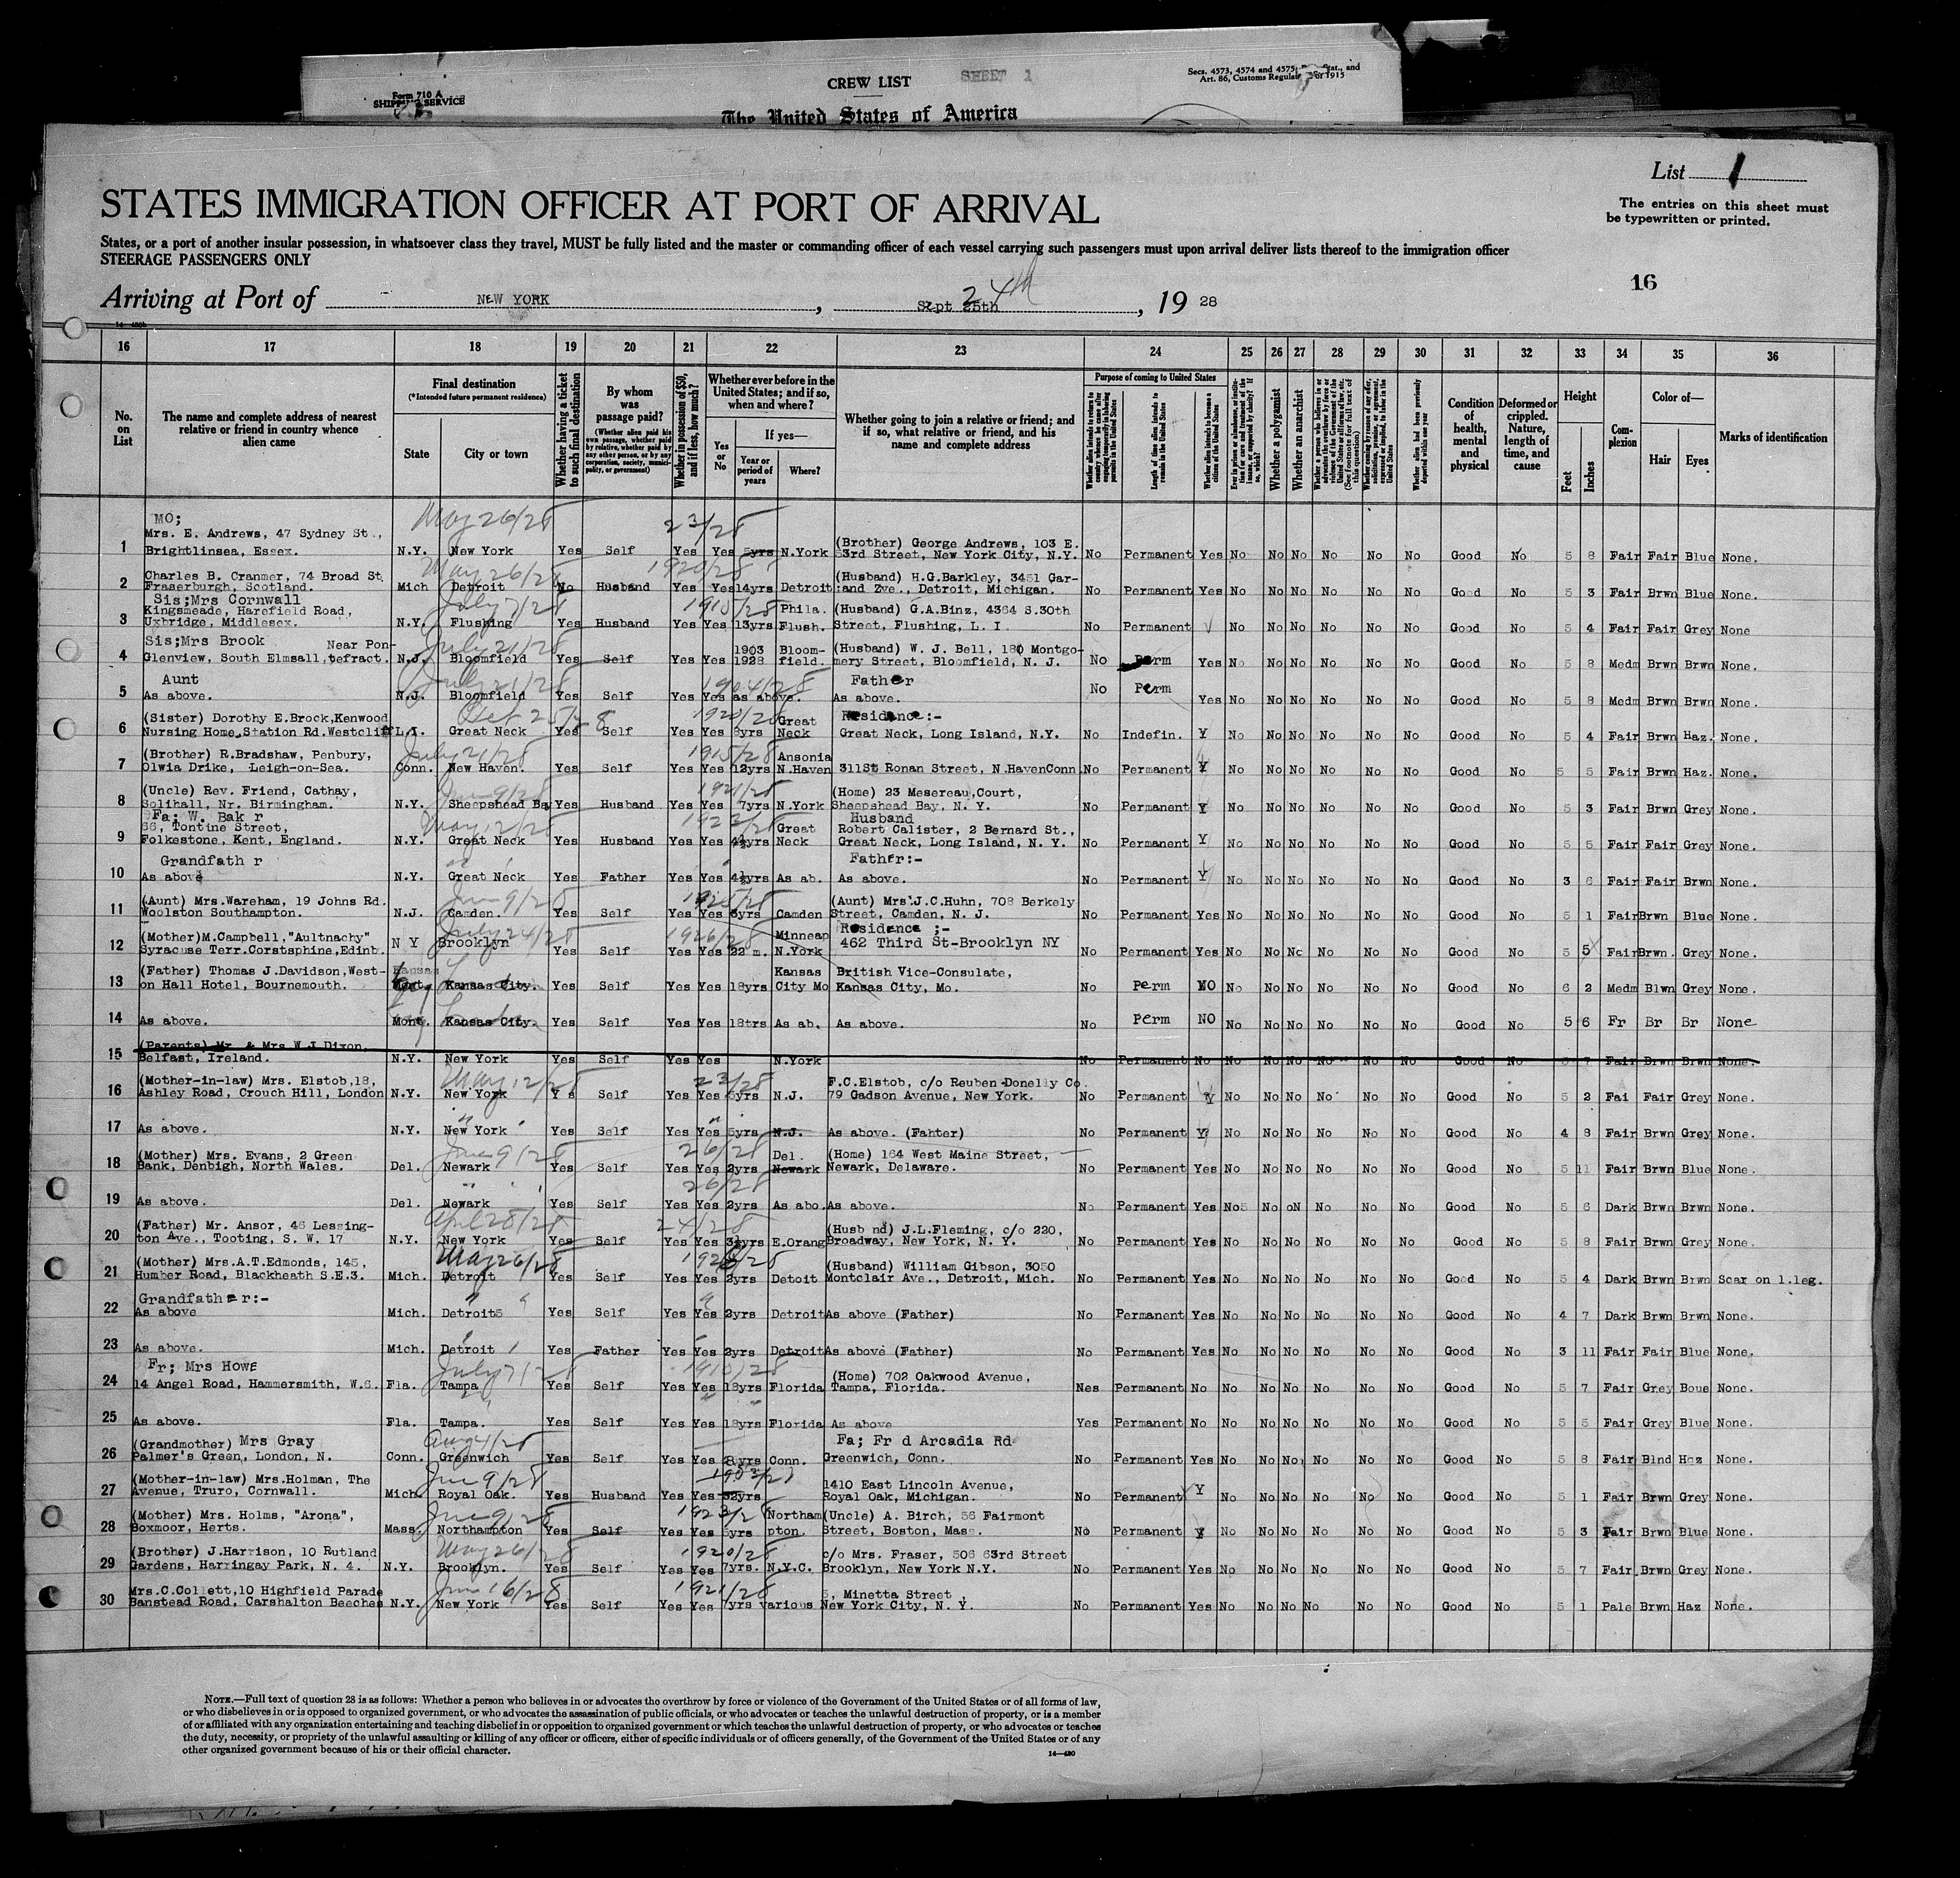 Form 710 A
SHIPPING SERVICE
CREW LIST
SHEET 1
Secs. 4573, 4574 and 4575, Stat., and
Art. 86, Customs Regulat of 1915
The United States of America
List 1
STATES IMMIGRATION OFFICER AT PORT OF ARRIVAL
The entries on this sheet must
be typewritten or printed.
States, or a port of another insular possession, in whatsoever class they travel, MUST be fully listed and the master or commanding officer of each vessel carrying such passengers must upon arrival deliver lists thereof to the immigration officer
STEERAGE PASSENGERS ONLY
16
Arriving at Port of NEW YORK, Sept 25th 24th, 19 28
16 17 18 19 20 21 22 23 24 25 26 27 28 29 30 31 32 33 34 35 36
No. on List
The name and complete address of nearest relative or friend in country whence alien came
Final destination
(*Intended future permanent residence)
State
City or town
Whether having a ticket to such final destination
By whom was passage paid?
(Whether alien paid his own passage, whether paid by relative, whether paid by any other person, or by any corporation, society, municipality, or government)
Whether in possession of $50, and if less, how much?
Whether ever before in the United States; and if so, when and where?
Yes or No
If yes—
Year or period of years
Where?
Whether going to join a relative or friend; and if so, what relative or friend, and his name and complete address
Purpose of coming to United States
Length of time alien intends to remain in the United States
Whether alien intends to become a citizen of the United States
Whether a polygamist
Whether an anarchist
Whether alien had been previously deported within one year
Condition of health, mental and physical
Deformed or crippled. Nature, length of time, and cause
Height
Feet
Inches
Complexion
Color of—
Hair
Eyes
Marks of identification
MO; May 26/28 23/28
1 Mrs. E. Andrews, 47 Sydney St., Brightlinsea, Essex. N.Y. New York Yes Self Yes Yes 5yrs N.York (Brother) George Andrews, 103 E. 53rd Street, New York City, N.Y. No Permanent Yes No No No No No No Good No 5 8 Fair Fair Blue None.
May 26/28 1920/28
2 Charles B. Cranmer, 74 Broad St. Fraserburgh, Scotland. Mich Detroit No Husband Yes Yes 14yrs Detroit (Husband) H.G.Barkley, 3451 Gar- :and Zve., Detroit, Michigan. No Permanent Yes No No No No No No Good No 5 3 Fair Brwn Blue None.
Sis;Mrs Cornwall July 7/28 1915/28
3 Kingsmeade, Harefield Road, Uxbridge, Middlesex. N.Y. Flushing Yes Husband Yes Yes 13yrs Phila. Flush. (Husband) G.A.Binz, 4364 S.30th Street, Flushing, L. I. No Permanent No No No No No No Good No 5 4 Fair Fair Grey None
Sis;Mrs Brook July 21/28
4 Glenview, South Elmsall, Near Pon- tefract. N.J. Bloomfield Yes Self Yes Yes 1903 1928 Bloom- field. (Husband) W. J. Bell, 180 Montgo- mery Street, Bloomfield, N. J. No Perm Yes No No No No No No Good No 5 8 Medm Brwn Brwn None.
Aunt July 21/28 1904/28 Father
5 As above. N.J. Bloomfield Yes Self Yes Yes as above. As above. No Perm Yes No No No No No No Good No 5 8 Medm Brwn Brwn None.
Oct 25/28 1920/28 Residence:-
6 (Sister) Dorothy E.Brock,Kenwood Nursing Home,Station Rd.Westcliff L.I. Great Neck Yes Self Yes Yes 8yrs Great Neck Great Neck, Long Island, N.Y. No Indefin. Y No No No No No No Good No 5 4 Fair Brwn Haz. None.
July 21/28 1915/28
7 (Brother) R.Bradshaw, Penbury, Olwia Drike, Leigh-on-Sea. Conn. New Haven. Yes Self Yes Yes 12yrs Ansonia N.Haven 311St Ronan Street, N.HavenConn. No Permanent Y No No No No No No Good No 5 5 Fair Brwn Haz. None.
June 9/28 1921/28
8 (Uncle) Rev. Friend, Cathay, Solihall, Nr. Birmingham. N.Y. Sheepshead Bay Yes Husband Yes Yes 7yrs N.York (Home) 23 Mesereau,Court, Sheepshead Bay, N. Y. No Permanent Y No No No No No No Good No 5 3 Fair Brwn Grey None.
Fa; W. Bak r May 12/28 1923/28 Husband
9 66, Tontine Street, Folkestone, Kent, England. N.Y. Great Neck Yes Husband Yes Yes 4½yrs Great Neck Robert Calister, 2 Bernard St., Great Neck, Long Island, N. Y. No Permanent Y No No No No No No Good No 5 5 Fair Fair Grey None.
Grandfath r Father:-
10 As above N.Y. Great Neck Yes Father Yes Yes 4½yrs As ab. As above. No Permanent Y No No No No No No Good No 3 6 Fair Fair Brwn None.
June 9/28 1925/28
11 (Aunt) Mrs.Wareham, 19 Johns Rd. Woolston Southampton. N.J. Camden. Yes Self Yes Yes Camden (Aunt) Mrs.J.C.Huhn, 708 Berkely Street, Camden, N. J. No Permanent Yes No No No No No No Good No 5 1 Fair Brwn Blue None.
July 24/28 1926/28 Residence ;-
12 (Mother)M.Campbell,"Aultnachy" Syracuse Terr.Corstsphine,Edinb. N Y Brooklyn Yes Self Yes Yes 22 m. Minneap N.York 462 Third St-Brooklyn NY No Permanent Yes No No Nc No No No Good No 5 5 Fair Brwn. Grey None.
13 (Father) Thomas J.Davidson,West- on Hall Hotel, Bournemouth. Kansas Kansas City. Yes Self Yes Yes 18yrs Kansas City Mo British Vice-Consulate, Kansas City, Mo. No Perm NO No No No No No No Good No 6 2 Medm Blwn Grey None.
14 As above. Mont. Kansas City. Yes Self Yes Yes 18trs As ab. As above. No Perm NO No No No No No No Good No 5 6 Fr Br Br None
15 (Parents) Mr. & Mrs.W.J.Dixon, Belfast, Ireland. N.Y. New York Yes Self Yes Yes N.York No Permanent No No No No No No No Good No 5 7 Fair Brwn Brwn None.
May 12/28 23/28
16 (Mother-in-law) Mrs. Elstob,18, Ashley Road, Crouch Hill, London N.Y. New York Y s Self Yes Yes 5yrs N.J. F.C.Elstob, c/o Reuben-Donelly Co. 79 Gadson Avenue, New York. No Permanent Y No No No No No No Good No 5 2 Fai Fair Grey None.
17 As above. N.Y. New York Yes Self Yes Yes 5yrs N.J. As above. (Fahter) No Permanent Y No No No No No No Good No 4 8 Fair Brwn Grey None.
June 9/28 26/28
18 (Mother) Mrs. Evans, 2 Green Bank, Denbigh, North Wales. Del. Newark Yes Self Yes Yes 2yrs Del. Newark (Home) 164 West Maine Street, Newark, Delaware. No Permanent Yes No No No No No No Good No 5 11 Fair Brwn Blue None.
26/28
19 As above. Del. Newark Yes Self Yes Yes 2yrs As abo. As above. No Permanent Yes No5 No oN No No No Good No 5 6 Dark Brwn Brwn None.
April 28/28 24/28
20 (Father) Mr. Ansor, 46 Lessing- ton Ave., Tooting, S. W. 17 N.Y. New York Yes Self Yes Yes 3½yrs E.Orang (Husb nd) J.L.Fleming, c/o 220, Broadway, New York, N. Y. No Permanent Yes No No No No No No Good No 5 8 Fair Brwn Grey None.
May 26/28 1926/28
21 (Mother) Mrs.A.T.Edmonds, 145, Humber Road, Blackheath S.E.3. Mich. Detroit Yes Self Yes Yes 2yrs Detoit (Husband) William Gibson, 3050 Montclair Ave., Detroit, Mich. No Permanent Yes No No No No No No Good No 5 4 Dark Brwn Brwn Scar on l.leg.
Grandfather:-
22 As above Mich. Detroit5 Yes Self Yes Yes 2yrs Detroit As above (Father) No Permanent Yes No No No No No No Good No 4 7 Dark Brwn Brwn None.
23 As above. Mich. Detroit Yes Father Yes Yes 2yrs Detroit As above (Father) No Permanent Yes No No No No No No Good No 3 11 Fair Fair Blue None.
Fr; Mrs Howe July 7/28 1910/28
24 14 Angel Road, Hammersmith, W.6. Fla. Tampa Yes Self Yes Yes 18yrs Florida (Home) 702 Oakwood Avenue, Tampa, Florida. Nes Permanent No No No No No No No Good No 5 7 Fair Grey Boue None.
25 As above. Fla. Tampa. Yes Self Yes Yes 18yrs Florida As above Yes Permanent No No No No No No No Good No 5 5 Fair Grey Blue None.
Aug 4/28 Fa; Fr d Arcadia Rd
26 (Grandmother) Mrs Gray Palmer's Green, London, N. Conn. Greenwich Yes Self Yes Yes 8yrs Conn. Greenwich, Conn. No Permanent Yes No No No, No No No Good No 5 8 Fair Blnd Haz None.
June 9/28
27 (Mother-in-law) Mrs.Holman, The Avenue, Truro, Cornwall. Mich. Royal Oak. Yes Husband Yes Yes 1410 East Lincoln Avenue, Royal Oak, Michigan. No Permanent Y No No No No No No Good No 5 1 Fair Brwn Grey None.
June 9/28 1923/2
28 (Mother) Mrs. Holms, "Arona", Boxmoor, Herts. Mass. Northampton Yes Self Yes Yes 5yrs Northam pton. (Uncle) A. Birch, 56 Fairmont Street, Boston, Mass. No Permanent Y No No No No No No Good No 5 3 Fair Brwn Blue None.
May 26/28 1920/28
29 (Brother) J.Harrison, 10 Rutland Gardens, Harringay Park, N. 4. N.Y. Brooklyn. Yes Self Yes Yes 7yrs. N.Y.C. c/o Mrs. Fraser, 506 63rd Street Brooklyn, New York N.Y. No Permanent Yes No No No No No No Good No 5 7 Fair. Brwn Grey None.
June 16/28 1921/28
30 Mrs.C.Collett,10 Highfield Parade Banstead Road, Carshalton Beeches N.Y. New York Yes Self Yes Yes 7yrs various 5, Minetta Street, New York City, N. Y. No Permanent Yes No No No No No No Good No 5 1 Pale Brwn Haz None.
NOTE.—Full text of question 28 is as follows: Whether a person who believes in or advocates the overthrow by force or violence of the Government of the United States or of all forms of law,
or who disbelieves in or is opposed to organized government, or who advocates the assassination of public officials, or who advocates or teaches the unlawful destruction of property, or is a member
of or affiliated with any organization entertaining and teaching disbelief in or opposition to organized government or which teaches the unlawful destruction of property, or who advocates or teaches
the duty, necessity, or propriety of the unlawful assaulting or killing of any officer or officers, either of specific individuals or of officers generally, of the Government of the United States or of any
other organized government because of his or their official character.
14—480